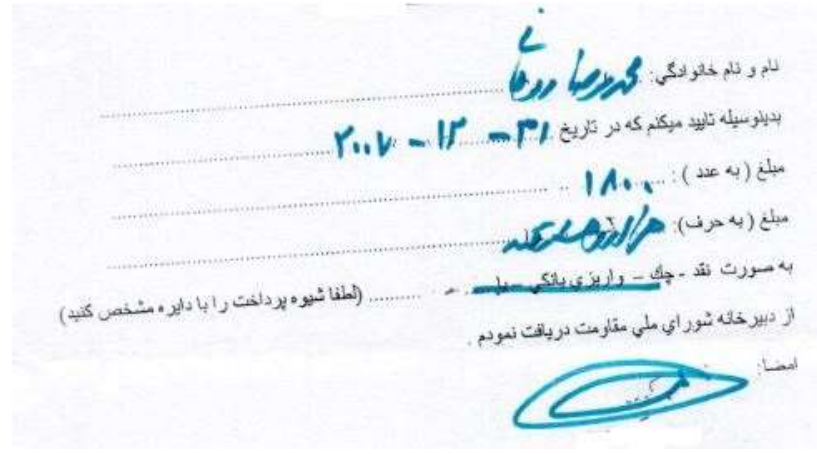 نام و نام خانوادگي: محمدرضا روحانی
بدینوسیله تایید میکنم که در تاریخ ۳۱ - ۱۲ - ۲۰۰۷
مبلغ ( به عدد ) : ۱۸۰۰
مبلغ ( به حرف): هزار و هشتصد
به صورت نقد - چك – واريزي بانكي - يا ......... (لطفا شیوه پرداخت را با دایره مشخص کنید)
از دبیرخانه شوراي ملي مقاومت دریافت نمودم .
امضا: